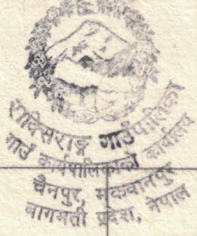 राक्सिराङ्ग गाउँपालिका
गाउँ कार्यपालिकाको कार्यालय
चैनपुर, मकवानपुर
बागमती प्रदेश, नेपाल